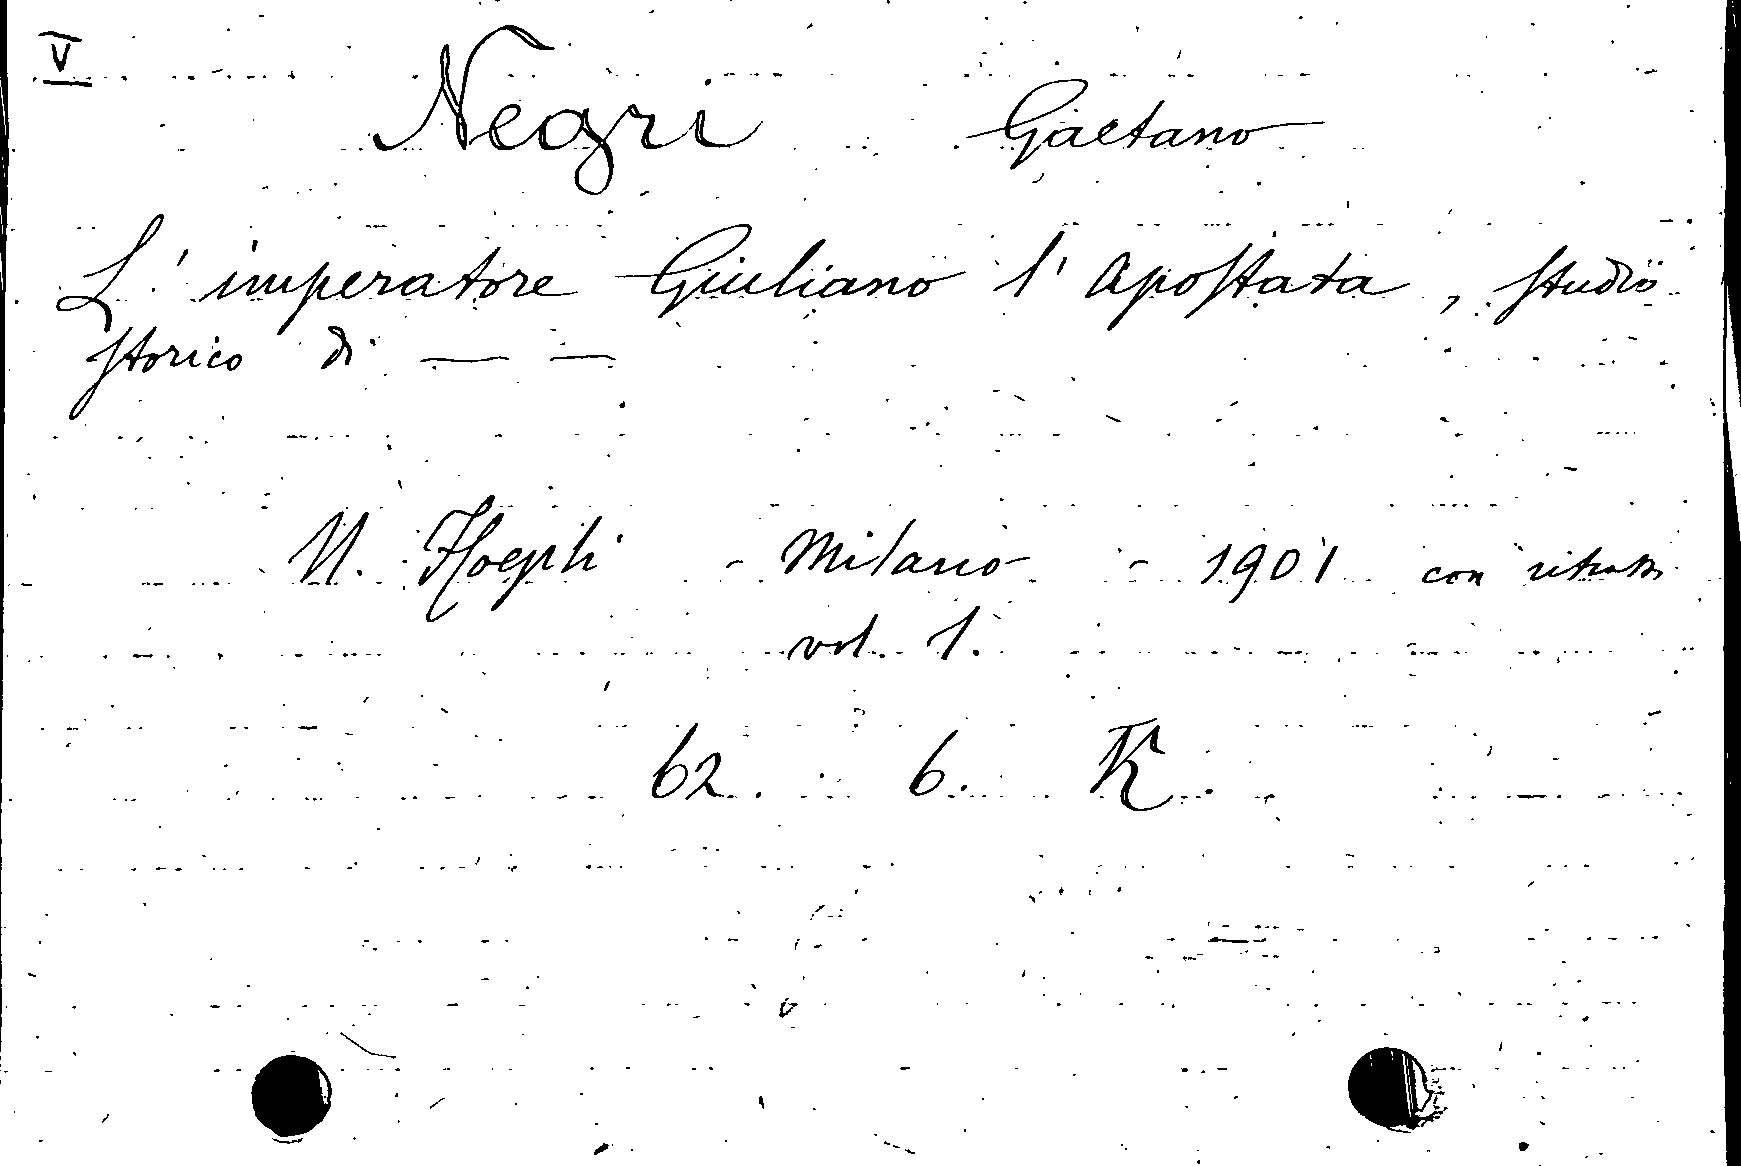 V
Negri Gaetano
L' imperatore Giuliano l' Apostata, studio
storico di — —
U. Hoepli - Milano - 1901 con ritratto
vol. 1.
62. 6. K.